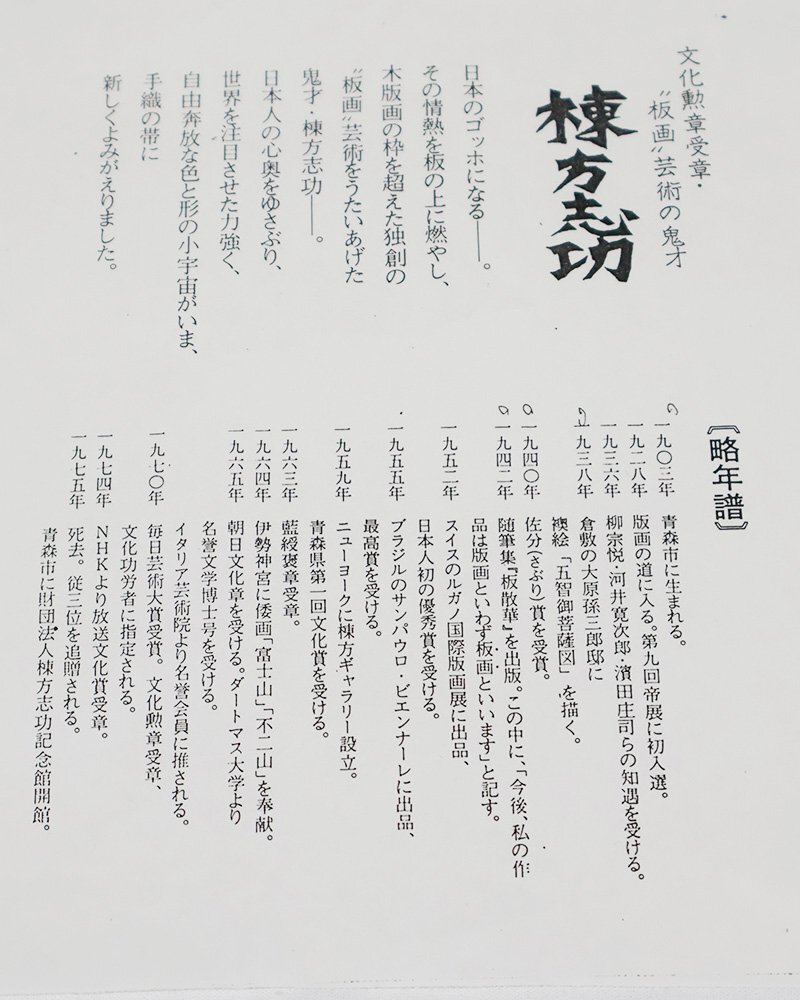 文化勲章受章・
“板画”芸術の鬼才
棟方志功
日本のゴッホになる――。
その情熱を板の上に燃やし、
木版画の枠を超えた独創の
“板画”芸術をうたいあげた
鬼才・棟方志功――。
日本人の心奥をゆさぶり、
世界を注目させた力強く、
自由奔放な色と形の小宇宙がいま、
手織の帯に
新しくよみがえりました。
〔略年譜〕
一九〇三年 青森市に生まれる。
一九二八年 版画の道に入る。第九回帝展に初入選。
一九三六年 柳宗悦・河井寛次郎・濱田庄司らの知遇を受ける。
一九三八年 倉敷の大原孫三郎邸に
襖絵「五智御菩薩図」を描く。
一九四〇年 佐分(さぶり)賞を受賞。
一九四二年 随筆集『板散華』を出版。この中に、「今後、私の作
品は版画といわず板画といいます」と記す。
一九五二年 スイスのルガノ国際版画展に出品、
日本人初の優秀賞を受ける。
一九五五年 ブラジルのサンパウロ・ビエンナーレに出品、
最高賞を受ける。
一九五九年 ニューヨークに棟方ギャラリー設立。
青森県第一回文化賞を受ける。
一九六三年 藍綬褒章受章。
一九六四年 伊勢神宮に倭画「富士山」「不二山」を奉献。
一九六五年 朝日文化章を受ける。ダートマス大学より
名誉文学博士号を受ける。
イタリア芸術院より名誉会員に推される。
一九七〇年 毎日芸術大賞受賞。文化勲章受章、
文化功労者に指定される。
一九七四年 NHKより放送文化賞受章。
一九七五年 死去。従三位を追贈される。
青森市に財団法人棟方志功記念館開館。